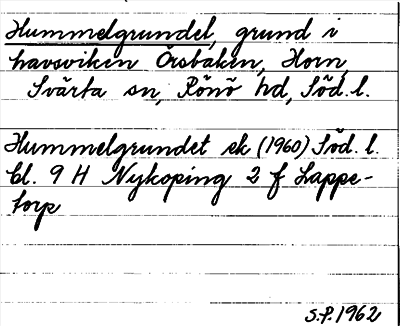 Hummelgrundet, grund i
havsviken Örsbaken, Horn,
Svärta sn, Rönö hd, Söd. l.
Hummelgrundet ek (1960) Söd. l.
bl. 9 H Nyköping 2 f Lappe-
torp
S.P. 1962